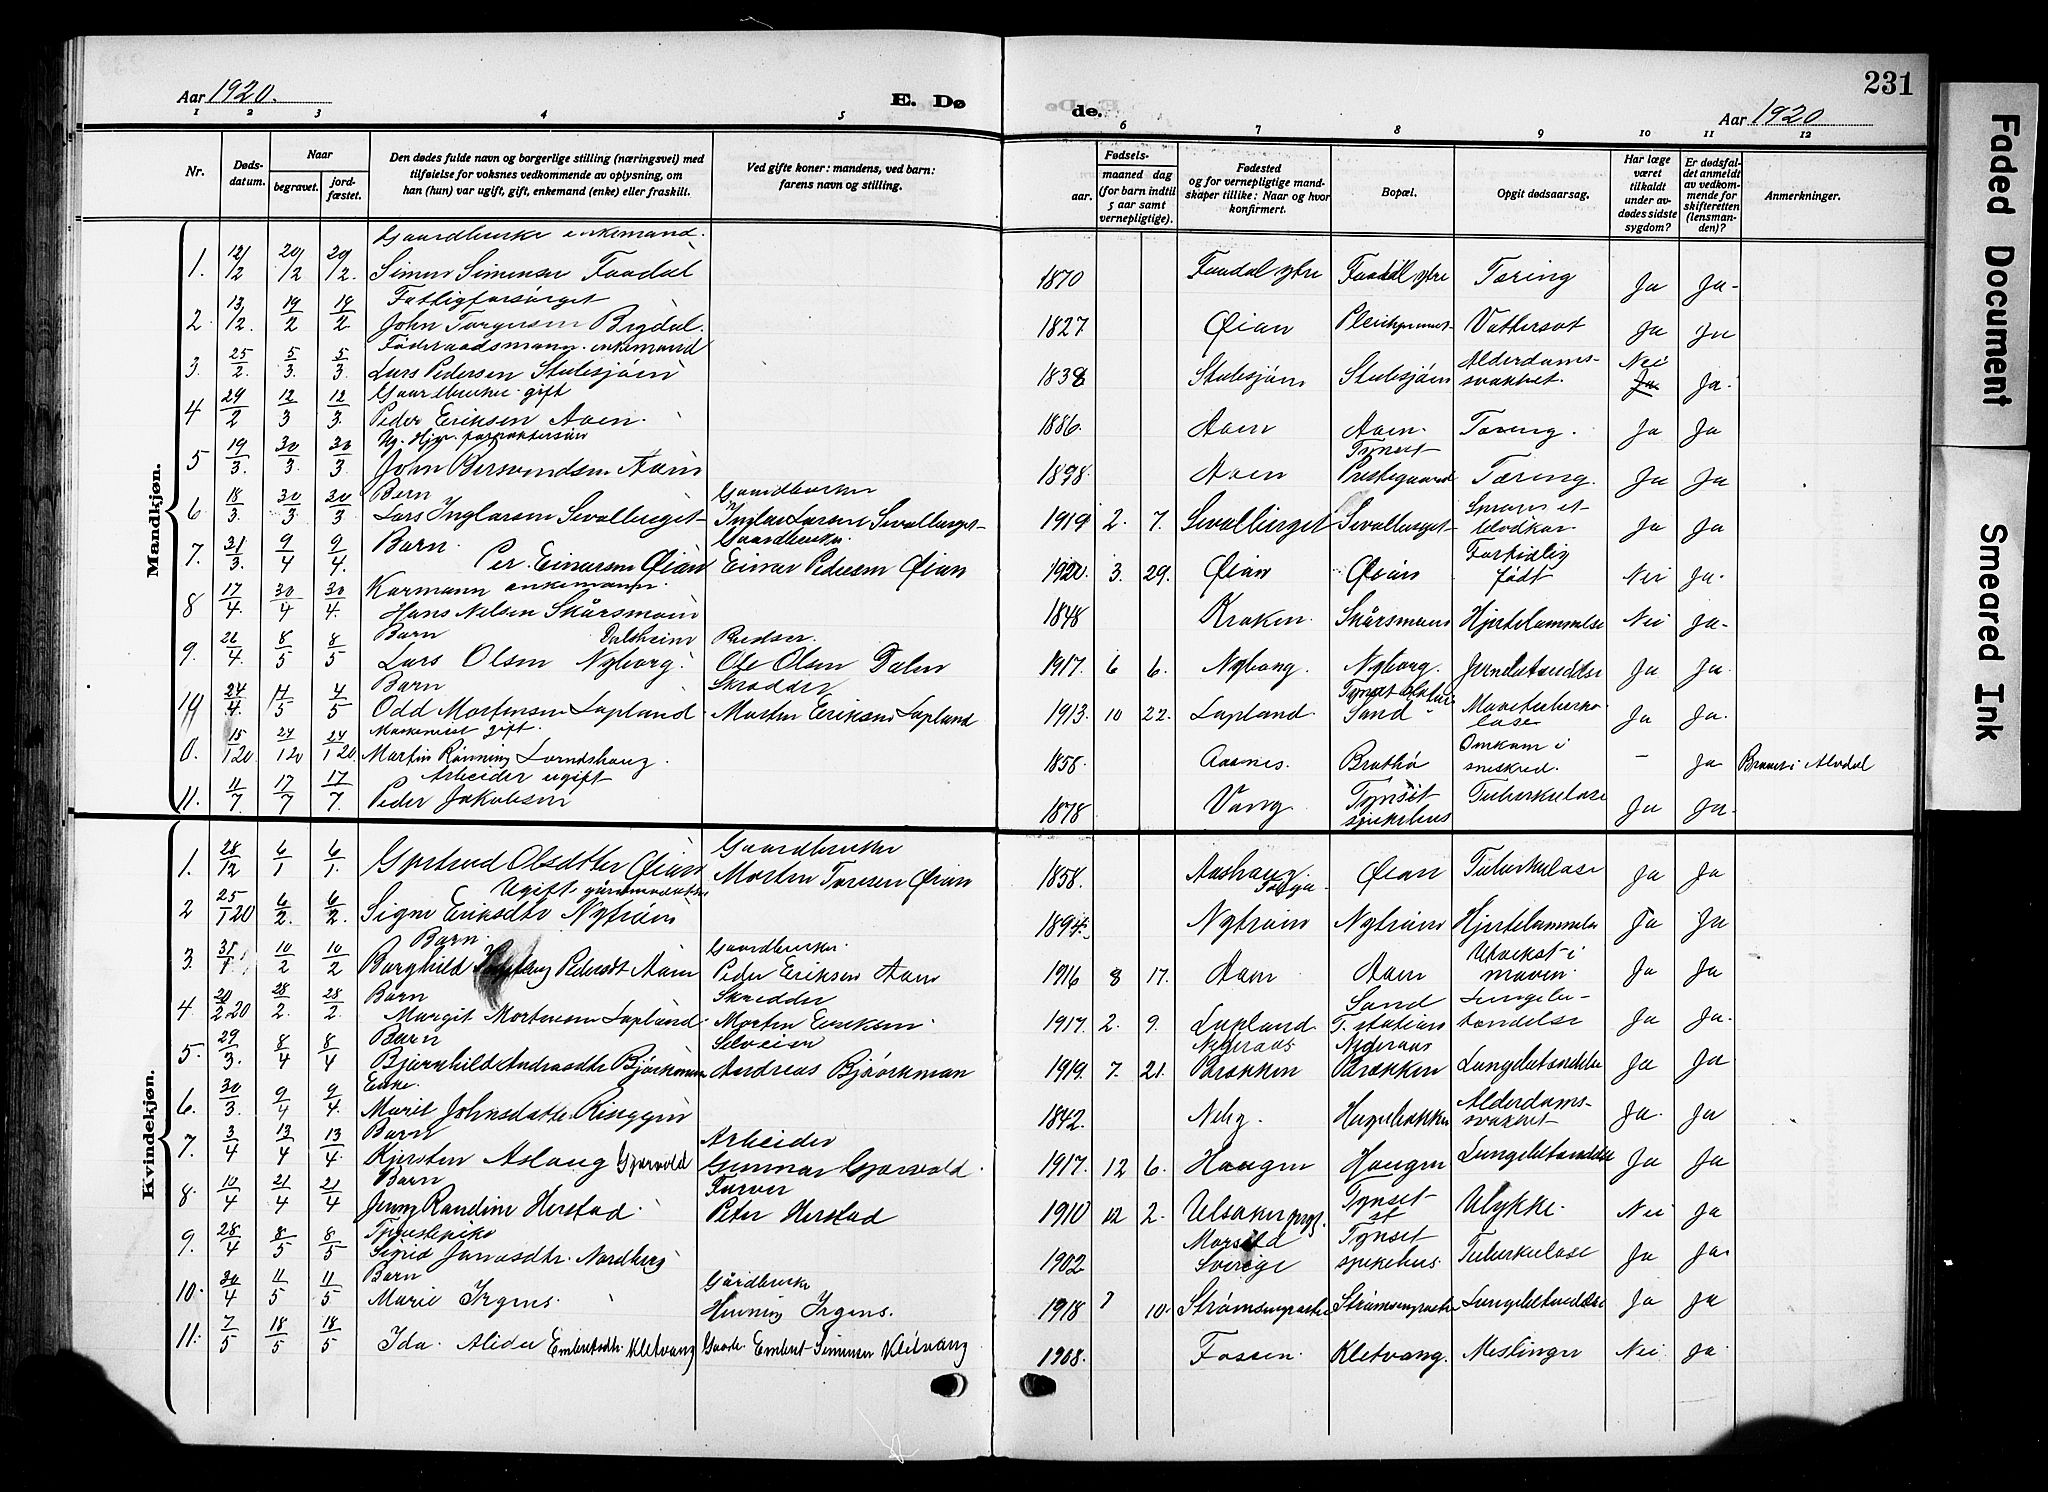 231
Aar 1920.
E. Dø
de.
Aar 1920
1 2 3 4 5 6 7 8 9 10 11 12
Nr.
Døds-
datum.
Naar
begravet.
jord-
fæstet.
Den dødes fulde navn og borgerlige stilling (næringsvei) med
tilføielse for voksnes vedkommende av oplysning, om
han (hun) var ugift, gift, enkemand (enke) eller fraskilt.
Ved gifte koner: mandens, ved barn:
farens navn og stilling.
Fødsels-
aar.
maaned dag
(for barn indtil
5 aar samt
vernepligtige).
Fødested
og for vernepligtige mand-
skaper tillike: Naar og hvor
konfirmert.
Bopæl.
Opgit dødsaarsag.
Har læge
været
tilkaldt
under av-
dødes sidste
sygdom?
Er dødsfal-
det anmeldt
av vedkom-
mende for
skifteretten
(lensman-
den)?
Anmerkninger.
Mandkjøn.
Gaardbruker enkemand.
1. 12/2 20/2 20/2 Simen Simensen Faadal 1870 Faadal ytre Faadal ytre Tæring Ja Ja
Fattigforsørget
2. 13/2. 19/2 18/2 John Torgersen Brydal. 1827 Øian Vattersot Ja Ja
Føderaadsmann enkemand
3. 25/2. 5/3. 5/3. Lars Pedersen Stubsjøen 1838 Stubsjøen Stubsjøen Alderdoms-
svakhet. Nei Ja Ja
Gaardbruker gift
4 29/2 12/3 12/3. Peder Eriksen Aaen. 1886. Aaen Aaen. Tæring. Ja Ja
5 19/3. 30/3. 30/3. John Bersvendsen Aaen 1898. Aaen Tynset
Prestegaard Tæring. Ja Ja
Barn Gaardbruker
6 18/3. 30/3. 30/3. Lars Inglarsen Sevallberget Inglar Larsen Sevallberget 1919 2. 7. Sevallberget Sevallberget Spræng et
blodkar Ja Ja
Barn. Gaardbruker.
7. 31/3. 9/4 9/4. Per Einarsen Øian Einar Pedersen Øian 1920. 3. 29. Øian Øian Fortidlig
født Nei Ja.
Karmann enkemann
8 17/4. 30/4 30/4. Hans Nilsen Skårsmoen 1848 Kroken. Skårsmoen Hjertelammelse Nei Ja.
Barn Dalsheim Budser.
9. 26/4. 8/5 8/5 Lars Olsen Nyborg. Ole Olsen Dalen 1917. 6 6. Nyborg. Nyborg. Ja Ja.
Barn Skrædder
10 24/4. 4/5 4/5 Odd Mortensen Lapland. Morten Eriksen Lapland 1913. 10 22. Lapland. Tynset station
Sand Mavetuberku-
lose Ja Ja.
gift.
0. 15/1 20 24/1 20 24/1 20 Martin Rønning Lorndshaug. 1858. Aasnes. Bratho Omkom i
sneskred. - Ja i Alvdal
Arbeider ugift
11. 11/7 17/7 17/7. Peder Jakobsen 1878 Vang. Tynset
sykehus Tuberkulose Ja Ja.
Kvindekjøn.
Gaardbruker
1. 28/12 6/1 6/1. Gjertrud Olsdtter Øian Morten Toresen Øian 1858. Aashaug.
Tolga. Øian Tuberkulose Ja Ja
Ugift
2 25/1 20 6/2. 6/2. Signe Eriksdtr Nytrøen 1894. Nytrøen Nytrøen Hjertelammelse Ja Ja
Barn. Gaardbruker.
3. 31/1 10/2 10/2 Borghild Ingeborg Pedersdt Aaen Peder Eriksen Aaen 1916 8 17. Aaen Aaen Utvekst i
maven. Ja Ja
Barn Skrædder
4. 20/2 20 28/2. 28/2. Margit Mortensen Lapland. Morten Eriksen. 1917. 2. 9. Lapland. Sand
T. station Lungebe-
tændelse Ja Ja.
Barn Selveier
5. 29/3. 8/4 8/4 Bjørnhild Andreasdtr Bjørkman Andreas Bjørkman 1919. 7. 21. Nyderaas
Brækken Nyderaas
Brækken Lungebetændelse Ja Ja
Enke.
6. 30/3. 9/4 9/4. Marit Johnsdatter 1842. Neby. Hagebakken Alderdoms-
svakhet Ja. Ja
Barn Arbeider
7. 3/4 13/4 13/4 Kjersten Aslaug Gjærvold Gunnar Gjærvold. 1917. 12 6. Haugen Haugen Lungebetændelse Ja Ja
Barn Farver
8. 10/4 21/4 21/4 Jenny Randine Herstad. Peter Herstad 1910 12 2. Tynset
st Ulykke. Nei Ja
Tjenestepike
9. 28/4 8/5 8/5 Sigrid Jonasdtr. Nordberg 1902
Sverige Tynset
sykehus. Tuberkulose Ja Ja.
Barn Gårdbruker
10. 30/4 11/5 11/5 Marie Irgens. Henning Irgens. 1918 7 10. Lungebetændelse Ja Ja
11. 7/5 18/5 18/5 Ida Alida Embretsdtr. Kletvang Gaardb. Embret Simensen Kletvang 1908. Fossen. Kletvang. Meslinger Nei Ja.
Faded Document
Smeared Ink